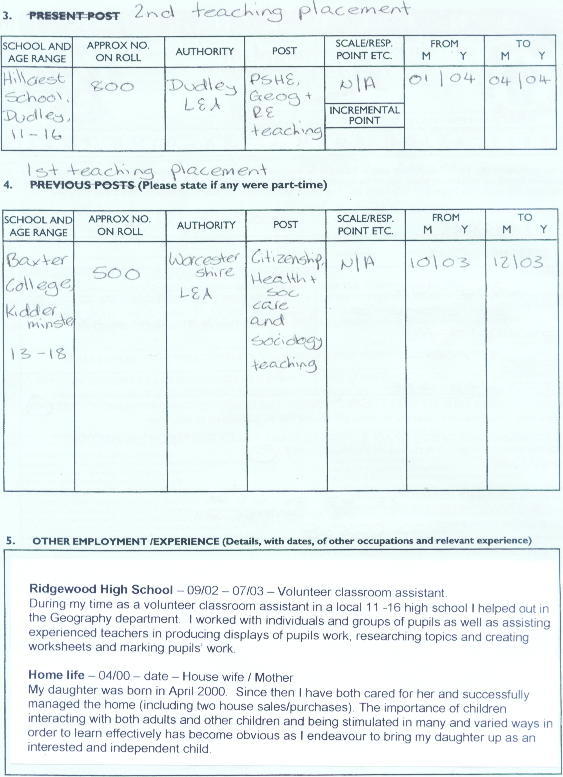 3. PRESENT POST 2nd teaching placement
SCHOOL AND AGE RANGE APPROX NO. ON ROLL AUTHORITY POST SCALE/RESP. POINT ETC. FROM M Y TO M Y
Hillcrest School, Dudley, 11-16 800 Dudley LEA PSHE, Geog + RE teaching N/A 01/04 04/04
INCREMENTAL POINT
1st teaching placement
4. PREVIOUS POSTS (Please state if any were part-time)
SCHOOL AND AGE RANGE APPROX NO. ON ROLL AUTHORITY POST SCALE/RESP. POINT ETC. FROM M Y TO M Y
Baxter College, Kidderminster 13-18 500 Worcestershire LEA Citizenship, Health + soc care and sociology teaching N/A 10/03 12/03
5. OTHER EMPLOYMENT /EXPERIENCE (Details, with dates, of other occupations and relevant experience)
Ridgewood High School – 09/02 – 07/03 – Volunteer classroom assistant.
During my time as a volunteer classroom assistant in a local 11 -16 high school I helped out in
the Geography department. I worked with individuals and groups of pupils as well as assisting
experienced teachers in producing displays of pupils work, researching topics and creating
worksheets and marking pupils' work.
Home life – 04/00 – date – House wife / Mother
My daughter was born in April 2000. Since then I have both cared for her and successfully
managed the home (including two house sales/purchases). The importance of children
interacting with both adults and other children and being stimulated in many and varied ways in
order to learn effectively has become obvious as I endeavour to bring my daughter up as an
interested and independent child.